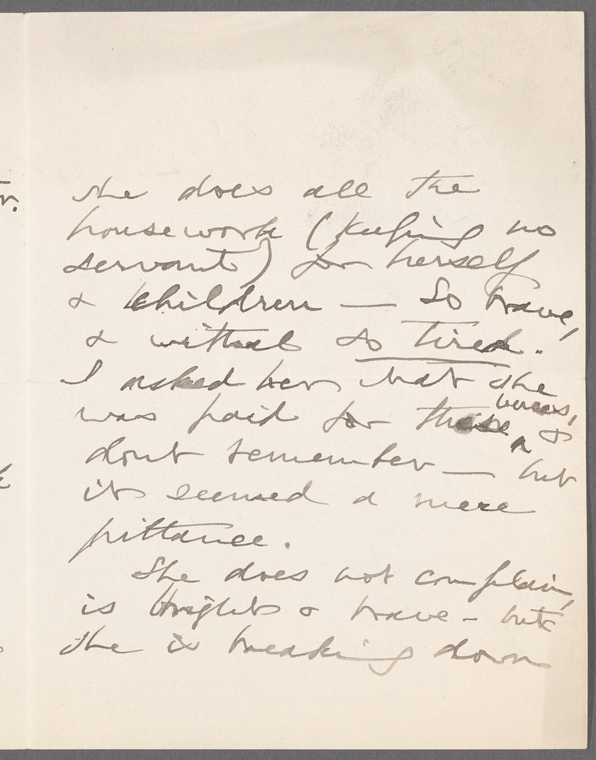 she does all the
housework (keeping no
servant) for herself
& children — So brave,
& withal so tired.
I asked her what she
was paid for these verses, &
dont remember — but
it seemed a mere
pittance.
She does not complain,
is bright & brave - but
she is breaking down